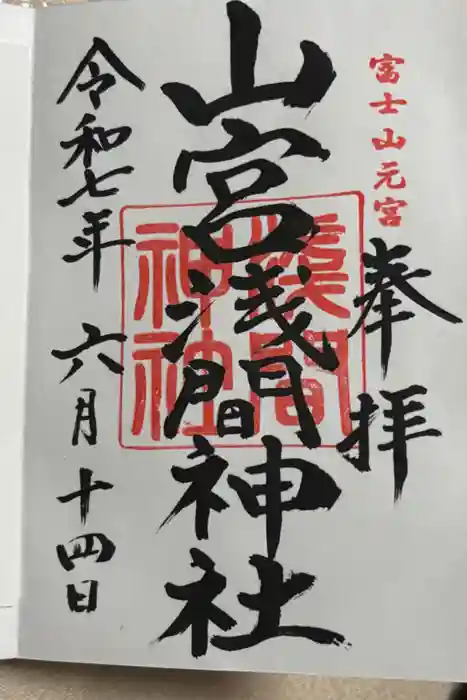 富士山元宮
奉拝
山宮浅間神社
淺間
神社
令和七年六月十四日